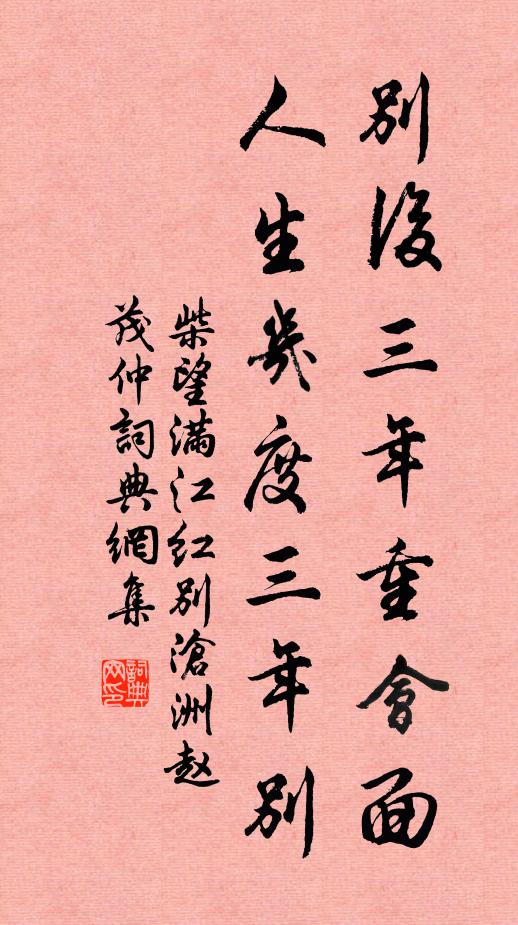 別後三年重會面
人生幾度三年別
柴望滿江紅別滄洲赵
茂仲詞典網集
詞典
网印